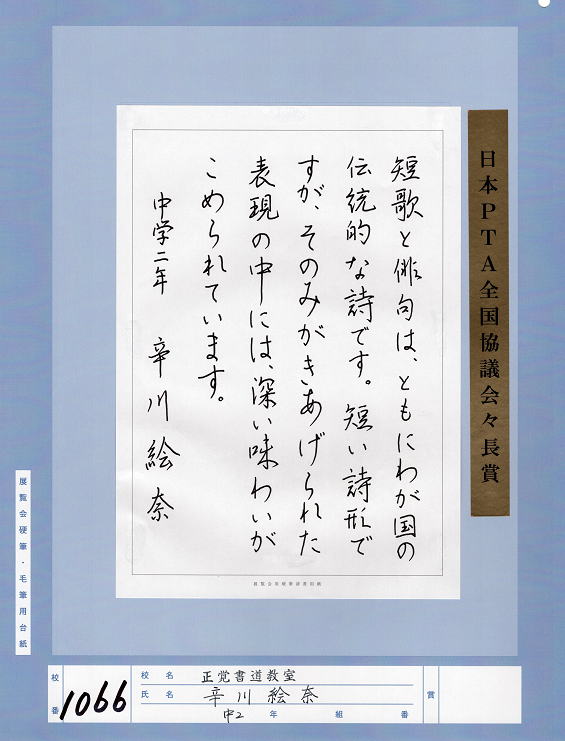 日本PTA全国協議会々長賞
短歌と俳句は、ともにわが国の
伝統的な詩です。短い詩形で
すが、そのみがきあげられた
表現の中には、深い味わいが
こめられています。
中学二年 辛川絵奈
展覧会硬筆清書用紙
展覧会硬筆・毛筆用台紙
校番 1066
校名 正覚書道教室
氏名 辛川絵奈
中2年 組 番
賞